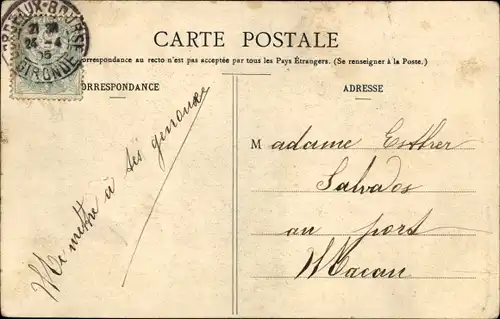 BORDEAUX-BOURSE
24 -4
05
GIRONDE
CARTE POSTALE
correspondance au recto n'est pas acceptée par tous les Pays Étrangers. (Se renseigner à la Poste.)
CORRESPONDANCE
Me mettre à ses genoux
ADRESSE
Madame Esther
Salvados
au port
Macau